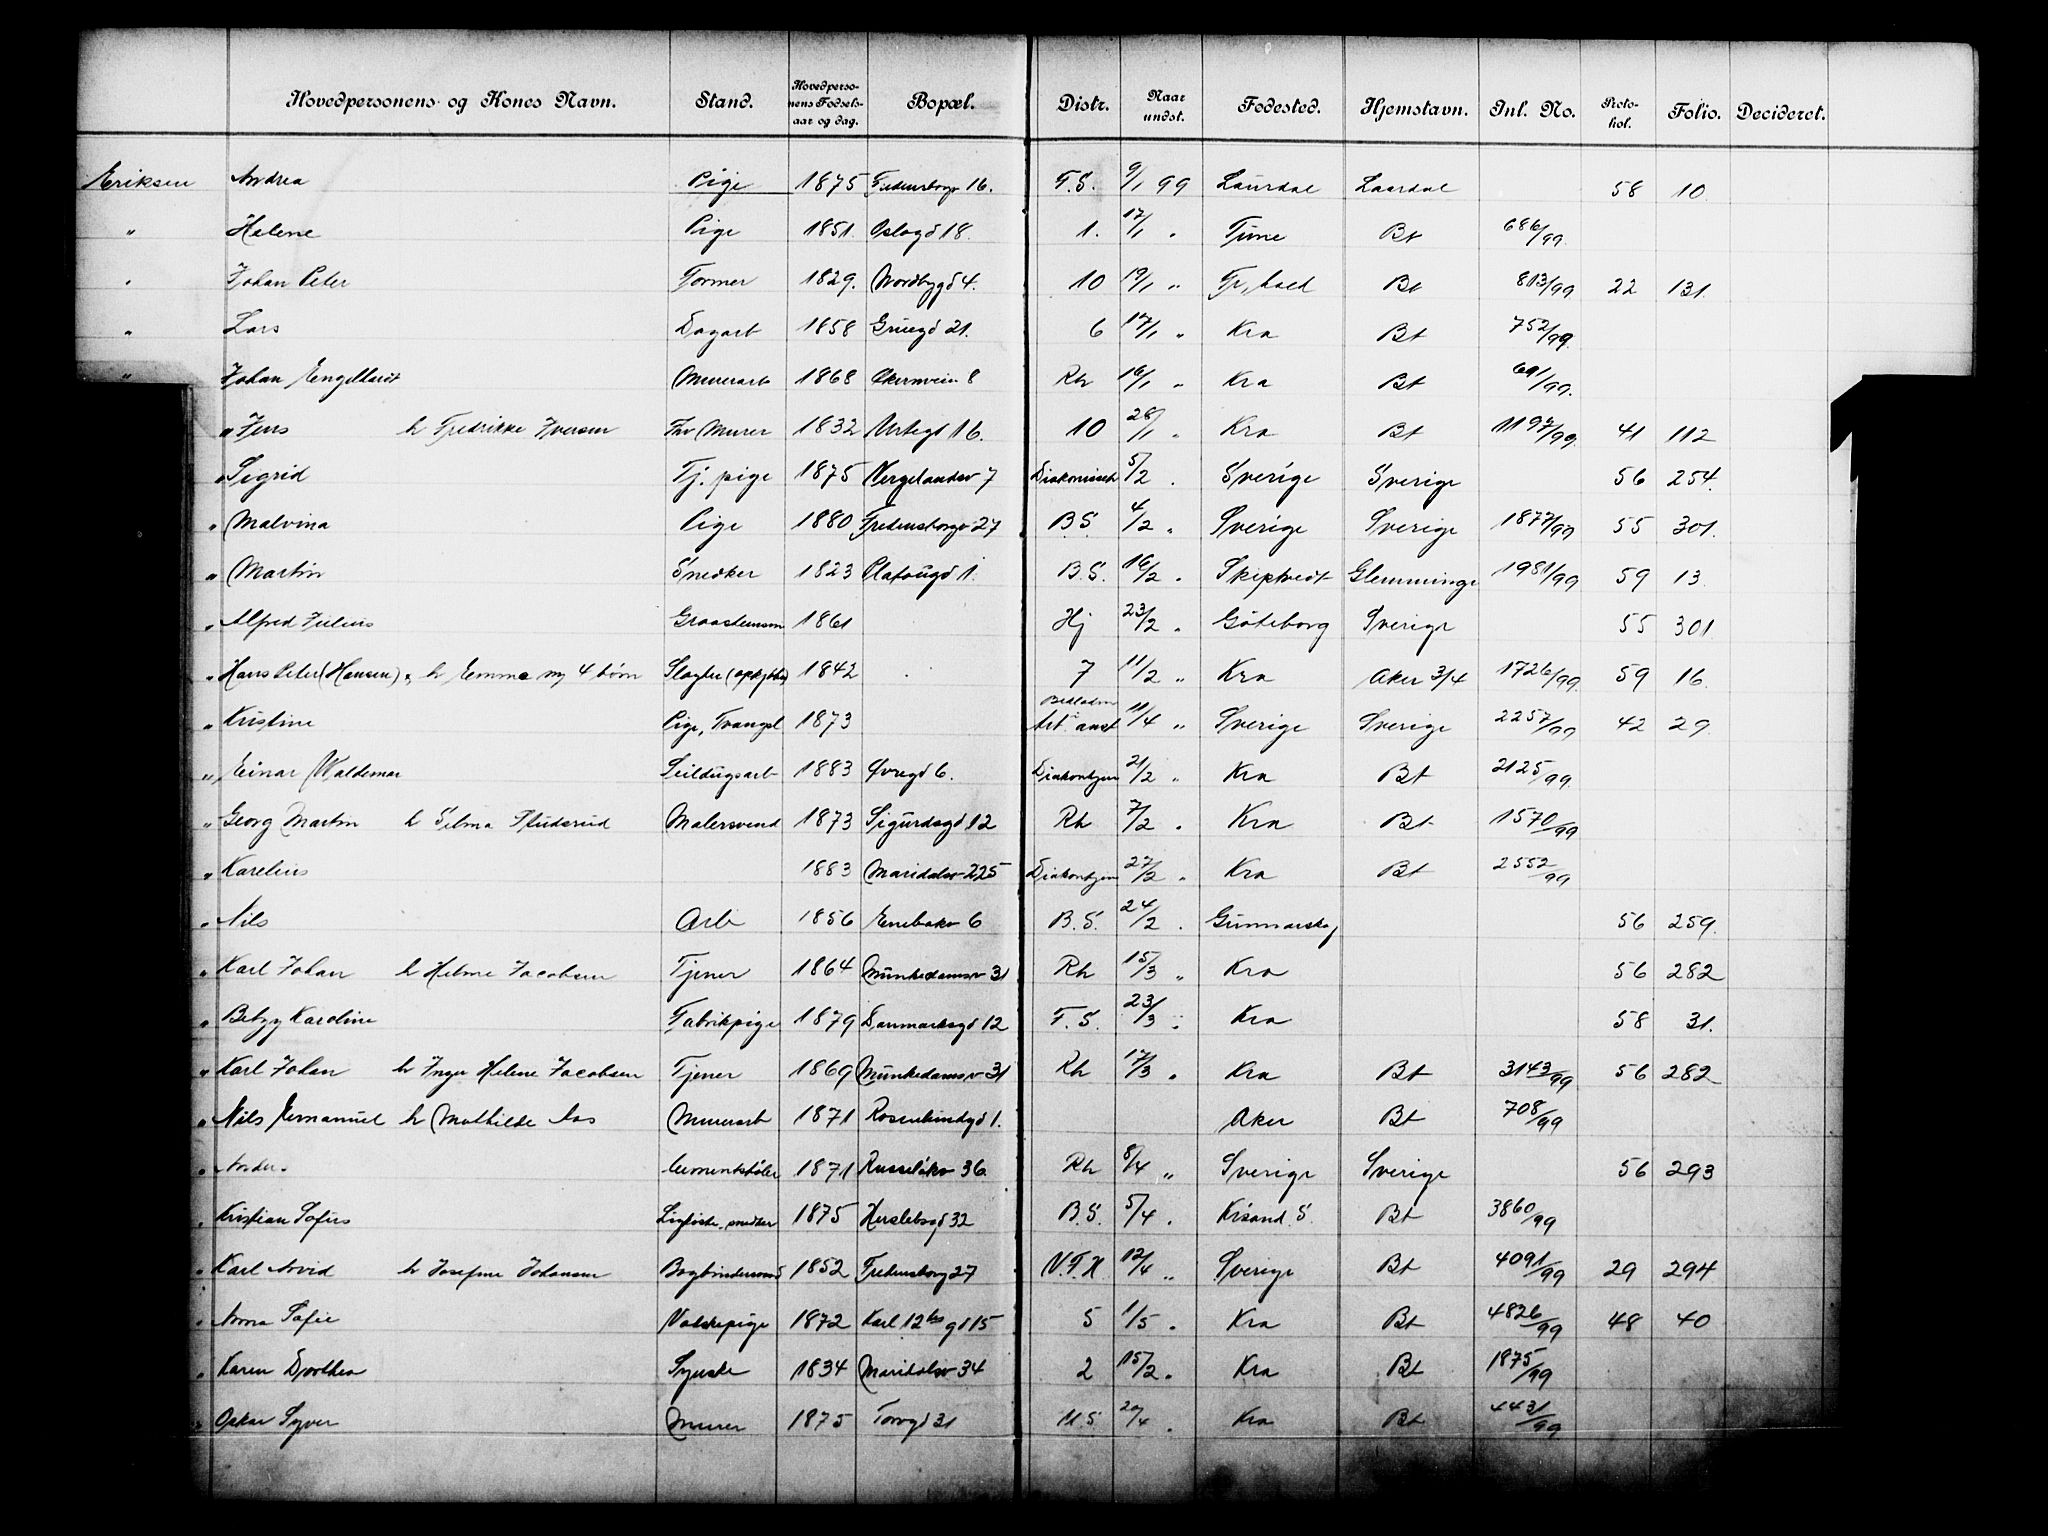 Hovedpersonens og Kones Navn. Stand. Hovedperso-nens Fødsels-aar og dag. Bopæl. Distr. Naar undst. Fødested. Hjemstavn. Inl. No. Proto-kol. Folio. Decideret.
Eriksen Andrea Pige 1875 Fredensborgv 16. F.S. 9/1 99 Laurdal Laardal 58 10.
" Helene Pige 1851. Oslogd 18. 1. 17/1 " Tune Bt 686/99.
" Johan Peter Former 1829. Nordbygd 4. 10 19/1 " Fr,hald Bt 813/99 22 131.
" Lars Dagarb 1858 Grüegd 21. 6 17/1 " Kra Bt 752/99.
" Johan Engelhardt Murerarb 1868 Økernvein 8 Rh 16/1 " Kra Bt 691/99.
" Jens h Fredrikke Iversen Fhv Murer 1832 Urtegd 16. 10 28/1 " Kra Bt 1197/99. 41 112
" Sigrid Tj. pige 1875 Vergelandsv 7 Diakonisseh 5/2 " Sverige Sverige 56 254.
" Malvina Pige 1880 Fredensborgv 27 B.S. 4/2 " Sverige Sverige 1877/99 55 301.
" Martin Snedker 1823 Olafsugd 1. B.S. 16/2 " Skiptvedt Glemminge 1981/99 59 13.
" Alfred Julius Graastensm 1861 Hj 23/2 " Göteborg Sverige 55 301
" Hans Peter (Hansen), h Emma m/ 4 børn Slagter 1842 7 11/2 " Kra Aker 3/4 1726/99. 59 16.
" Kristine Pige, Tvangsl 1873 Arb anst 11/4 " Sverige Sverige 2257/99 42 29.
" Einar Waldemar Seildugsarb 1883 Øvregd 6. Diakonhjem 21/2 " Kra Bt 2125/99.
" Georg Martin h Selma Studsrud Malersvend 1873 Sigurdsgd 12 Rh 7/2 " Kra Bt 1570/99
" Karelius 1883 Maridalsv 225 Diakonhjem 27/2 " Kra Bt 2552/99
" Nils Arb 1856 Enebakv 6 B.S. 24/2 " Gunnarskog 56 259.
" Karl Johan h Helene Jacobsen Tjener 1864 Munkedamsv 31 Rh 15/3 " Kra 56 282
" Betzy Karoline Fabrikpige 1879 Danmarksgd 12 F.S. 23/3 " Kra 58 31.
" Karl Johan h Inger Helene Jacobsen Tjener 1869 Munkedamsv 31 Rh 17/3 " Kra Bt 3143/99 56 282
" Nils Emanuel h Mathilde Aas Murerarb 1871 Rosenlundgd 1. Aker Bt 708/99
" Anders Cementstøber 1871 Russeløkv 36 Rh 8/4 " Sverige Sverige 56 293
" Kristian Sofus Ligkiste,snedker 1875 Herslebsgd 32 B.S. 5/4 " Krsand. S. Bt 3860/99
" Karl Arvid h Josefine Johansen Bogbindersvend 1852 Fredensborg 27 V.F.H 12/4 " Sverige Bt 4091/99 29 294
" Anna Sofie Vaskepige 1872 Karl 12tes gd 15 5 1/5 " Kra Bt 4826/99 48 40
" Karen Dorthea Syerske 1834 Maridalsv 34 2 15/2 " Kra Bt 1875/99
" Oskar Syver Murer 1875 Torvgd 31 U.S. 20/4 " Kra Bt 4431/99